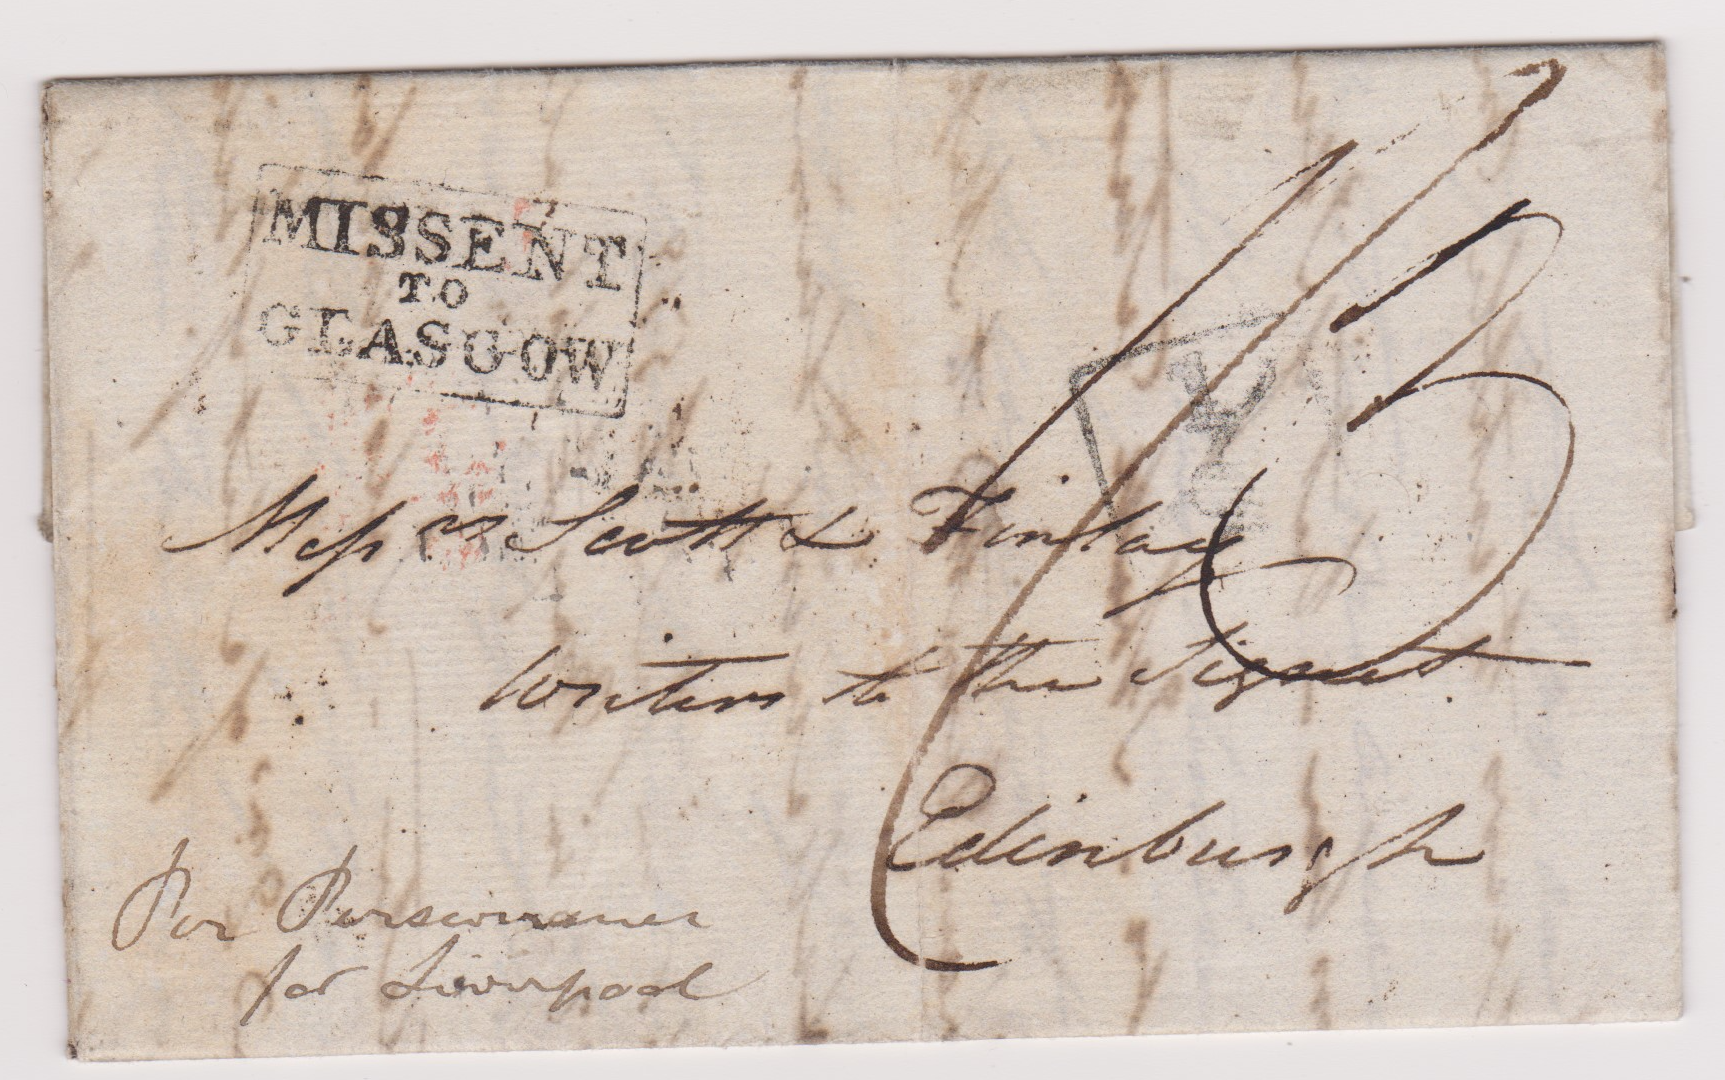 MISSENT
TO
GLASGOW
½
Messrs Scott & Finlay
Writers to the Signet
Edinburgh
Per Perseverance
for Liverpool